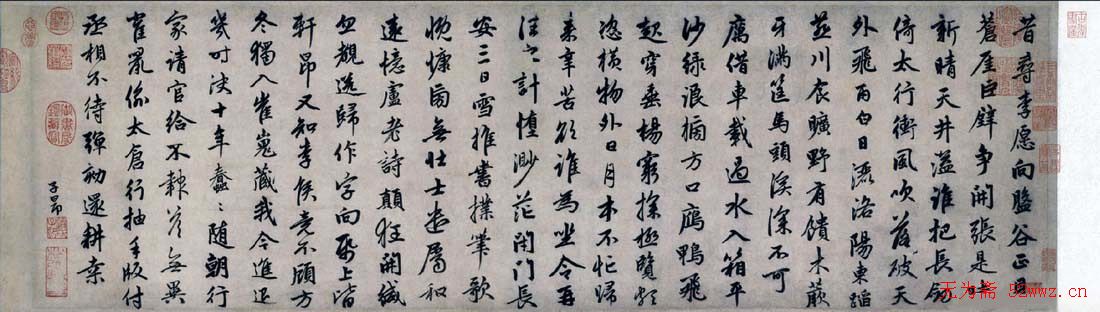 昔尋李愿向盤谷正見
蒼崖白壁爭開張是時
新晴天井溢誰把長劍
倚太行衝風吹落破天
外飛雨白日灑洛陽東蹈
燕川食曠野有饋木蕨
牙滿筐馬頭溪深不可
厲借車載過水入箱平
沙綠浪搒方口鴈鴨飛
起穿垂楊窮探極覽頗
恣橫物外日月本不忙歸
來辛苦欲誰為坐令再
往之計墮渺茫閉門長
安三日雪推書撲筆歌
慨慷旁無壯士遣屬和
遠憶盧老詩顛狂開緘
忽覩送歸作字向紙上皆
軒昂又知李侯竟不顧方
冬獨入崔嵬藏我今進退
幾時決十年蠢々随朝行
家請官給不報答無異
雀鼠偷太倉行抽手版付
丞相不待彈劾還耕桒
子昂
无为斋 52wwz.cn